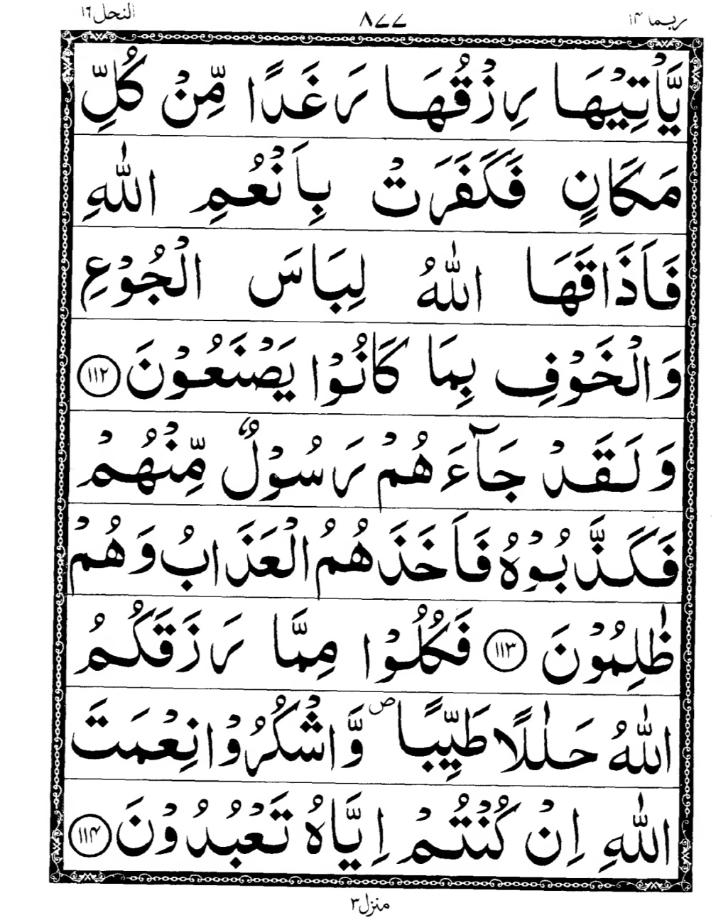 ربما ۱۴ ۸۷۷ النحل ۱۶
يَّاْتِيْهَا رِزْقُهَا رَغَدًا مِّنْ كُلِّ
مَكَانٍ فَكَفَرَتْ بِاَنْعُمِ اللّٰهِ
فَاَذَاقَهَا اللّٰهُ لِبَاسَ الْجُوْعِ
وَالْخَوْفِ بِمَا كَانُوْا يَصْنَعُوْنَ ﴿۱۱۲﴾
وَلَقَدْ جَآءَهُمْ رَسُوْلٌ مِّنْهُمْ
فَكَذَّبُوْهُ فَاَخَذَهُمُ الْعَذَابُ وَهُمْ
ظٰلِمُوْنَ ﴿۱۱۳﴾ فَكُلُوْا مِمَّا رَزَقَكُمُ
اللّٰهُ حَلٰلًا طَيِّبًا ۖ وَّاشْكُرُوْا نِعْمَتَ
اللّٰهِ اِنْ كُنْتُمْ اِيَّاهُ تَعْبُدُوْنَ ﴿۱۱۴﴾
منزل ۳